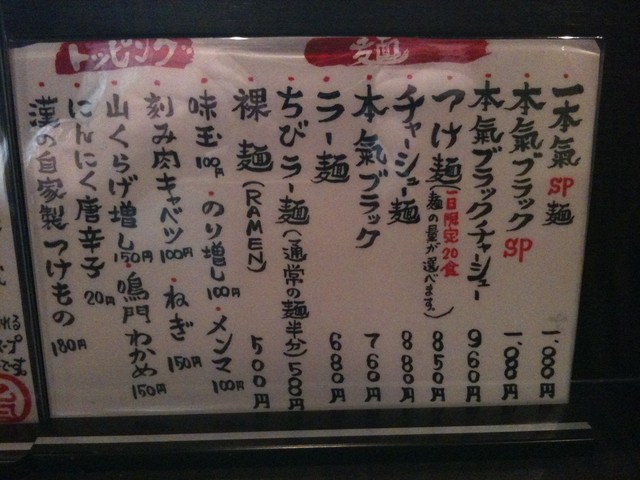 麺
一本氣SP麺 1,000円
本氣ブラックSP 1,080円
本氣ブラックチャーシュー 960円
つけ麺 一日限定20食 (麺の量が選べます。) 850円
チャーシュー麺 880円
本氣ブラック 760円
ラー麺 680円
ちびラー麺(通常の麺半分) 580円
裸麺(RAMEN) 500円
トッピング
味玉 100円 ・のり増し 100円 ・メンマ 100円
刻み肉キャベツ 100円 ・ねぎ 150円
山くらげ増し 150円 ・鳴門わかめ 150円
にんにく唐辛子 20円
漢の自家製つけもの 180円